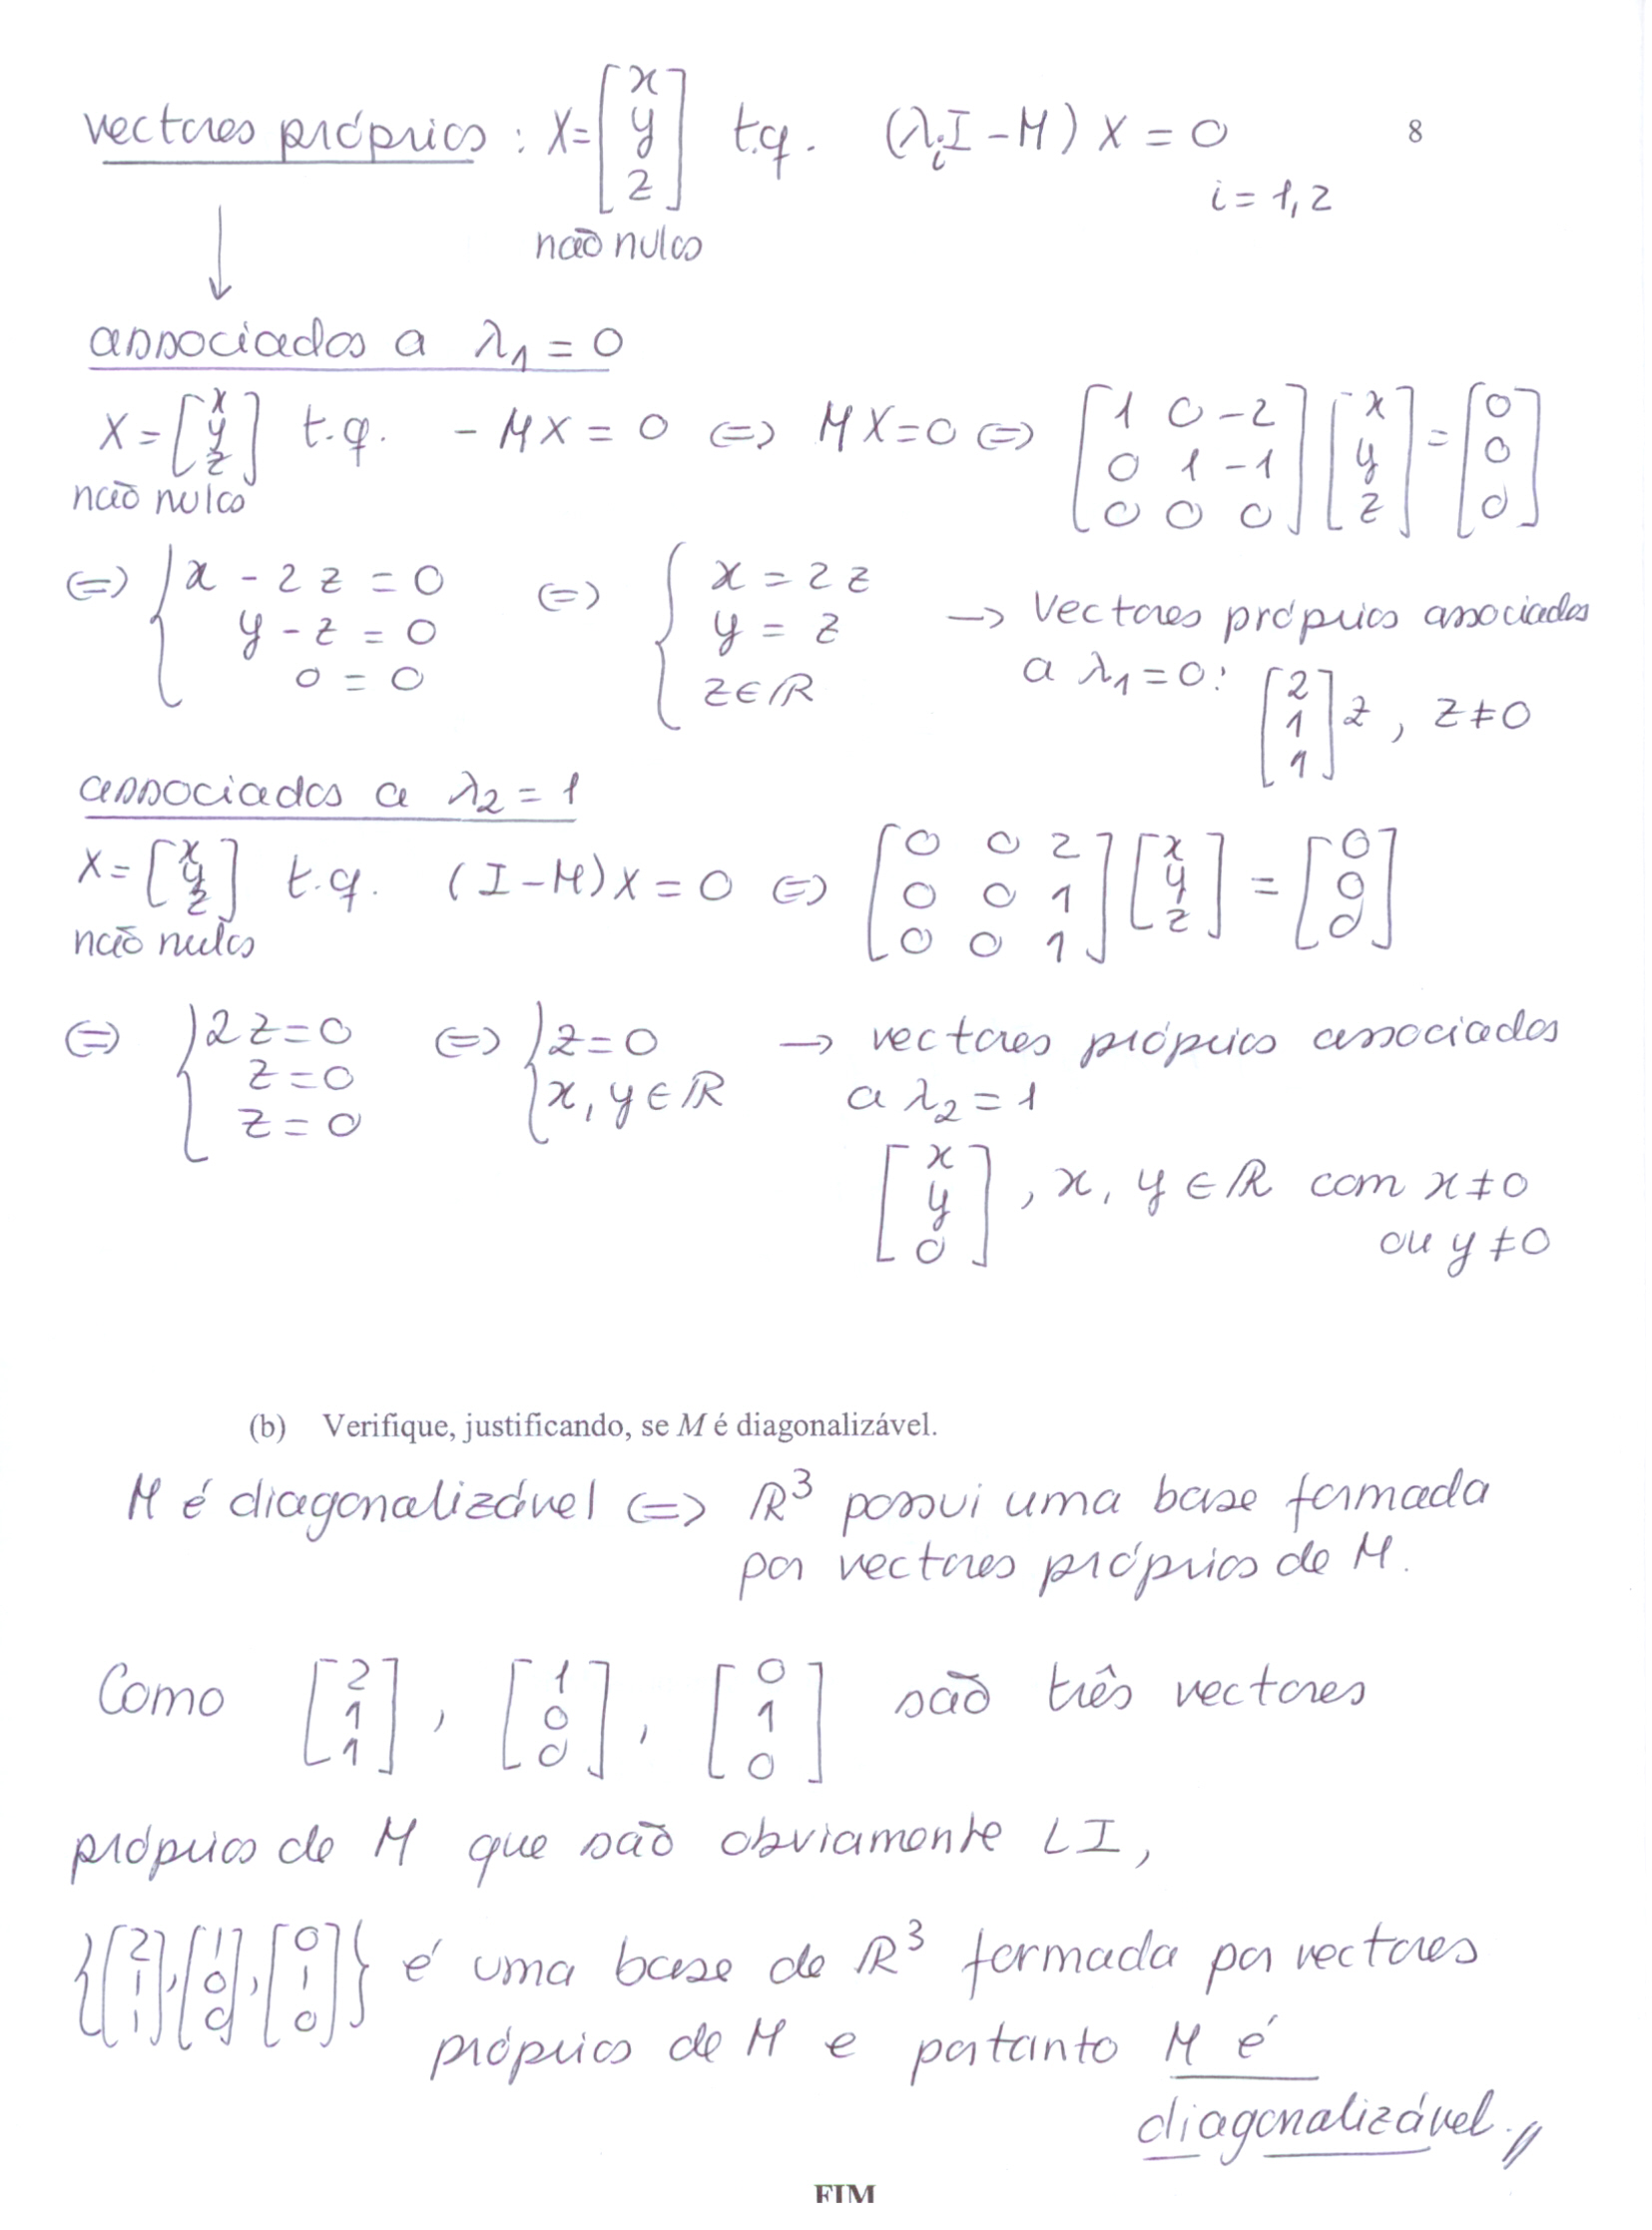 vectores próprios : X = [x y z] t.q. (λᵢI - M) X = 0
8
i = 1, 2
não nulos
associados a λ₁ = 0
X = [x y z] t.q. - MX = 0 ⇔ MX = 0 ⇔ [1 0 -2; 0 1 -1; 0 0 0] [x y z] = [0 0 0]
não nulos
⇔ { x - 2z = 0; y - z = 0; 0 = 0 ⇔ { x = 2z; y = z; z ∈ ℝ → Vectores próprios associados
a λ₁ = 0: [2 1 1] z , z ≠ 0
associados a λ₂ = 1
X = [x y z] t.q. (I - M) X = 0 ⇔ [0 0 2; 0 0 1; 0 0 1] [x y z] = [0 0 0]
não nulos
⇔ { 2z = 0; z = 0; z = 0 ⇔ { z = 0; x, y ∈ ℝ → vectores próprios associados
a λ₂ = 1
[x y 0] , x, y ∈ ℝ com x ≠ 0
ou y ≠ 0
(b) Verifique, justificando, se M é diagonalizável.
M é diagonalizável ⇔ ℝ³ possui uma base formada
por vectores próprios de M.
Como [2 1 1] , [1 0 0] , [0 1 0] são três vectores
próprios de M que são obviamente LI,
{[2 1 1], [1 0 0], [0 1 0]} é uma base de ℝ³ formada por vectores
próprios de M e portanto M é
diagonalizável.//
FIM